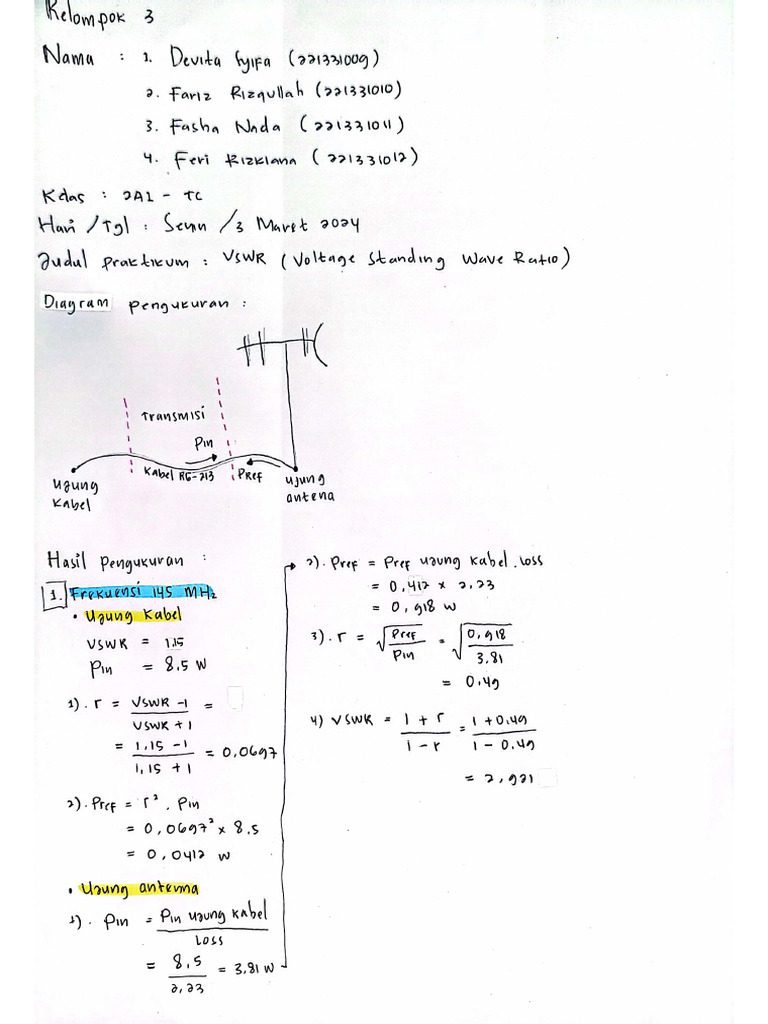 Kelompok 3
Nama : 1. Devita Syifa (221331009)
2. Fariz Rizqullah (221331010)
3. Fasha Nada (221331011)
4. Feri Rizkiana (221331012)
Kelas : 2A1 - TC
Hari /Tgl : Senin /3 Maret 2024
Judul praktikum : VSWR (Voltage Standing Wave Ratio)
Diagram pengukuran :
Transmisi
Pin
Kabel RG-213
PRef
Ujung kabel
ujung antena
Hasil pengukuran :
1. Frekuensi 145 MHz
• Ujung Kabel
VSWR = 1.15
Pin = 8.5 W
1). r = VSWR -1 / VSWR +1 =
= 1,15 -1 / 1,15 +1 = 0,0697
2). Pref = r² . Pin
= 0,0697² x 8.5
= 0,0412 W
• Ujung antenna
1). Pin = Pin ujung kabel / Loss
= 8,5 / 2,23 = 3,81 W
2). Pref = Pref ujung kabel . Loss
= 0,412 x 2,23
= 0,918 W
3). r = √ Pref / Pin = √ 0,918 / 3.81
= 0.49
4) VSWR = 1 + r / 1 - r = 1 + 0.49 / 1 - 0.49
= 2,921